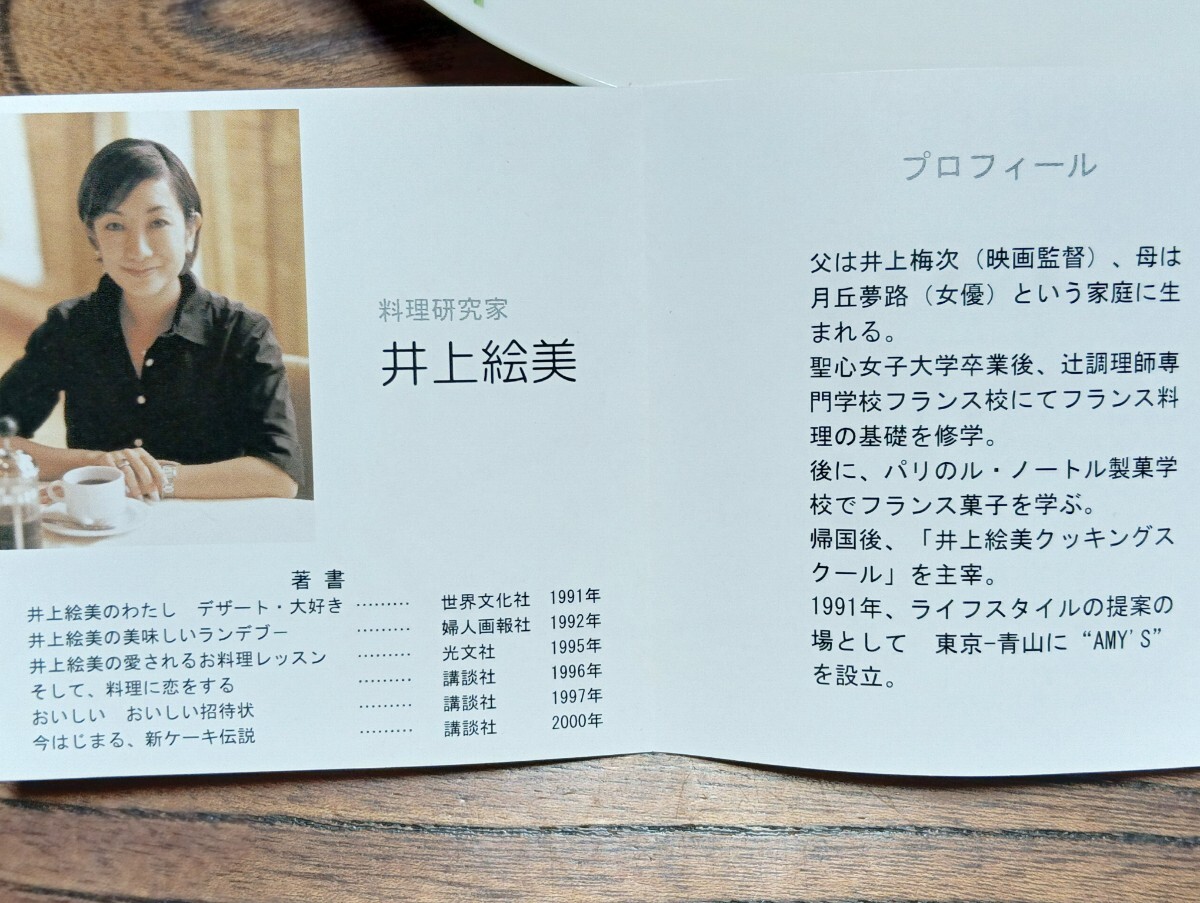 料理研究家
井上絵美
著書
井上絵美のわたし　デザート・大好き ……… 世界文化社 1991年
井上絵美の美味しいランデブー ……… 婦人画報社 1992年
井上絵美の愛されるお料理レッスン ……… 光文社 1995年
そして、料理に恋をする ……… 講談社 1996年
おいしい　おいしい招待状 ……… 講談社 1997年
今はじまる、新ケーキ伝説 ……… 講談社 2000年
プロフィール
父は井上梅次（映画監督）、母は
月丘夢路（女優）という家庭に生
まれる。
聖心女子大学卒業後、辻調理師専
門学校フランス校にてフランス料
理の基礎を修学。
後に、パリのル・ノートル製菓学
校でフランス菓子を学ぶ。
帰国後、「井上絵美クッキングス
クール」を主宰。
1991年、ライフスタイルの提案の
場として　東京-青山に“AMY'S”
を設立。